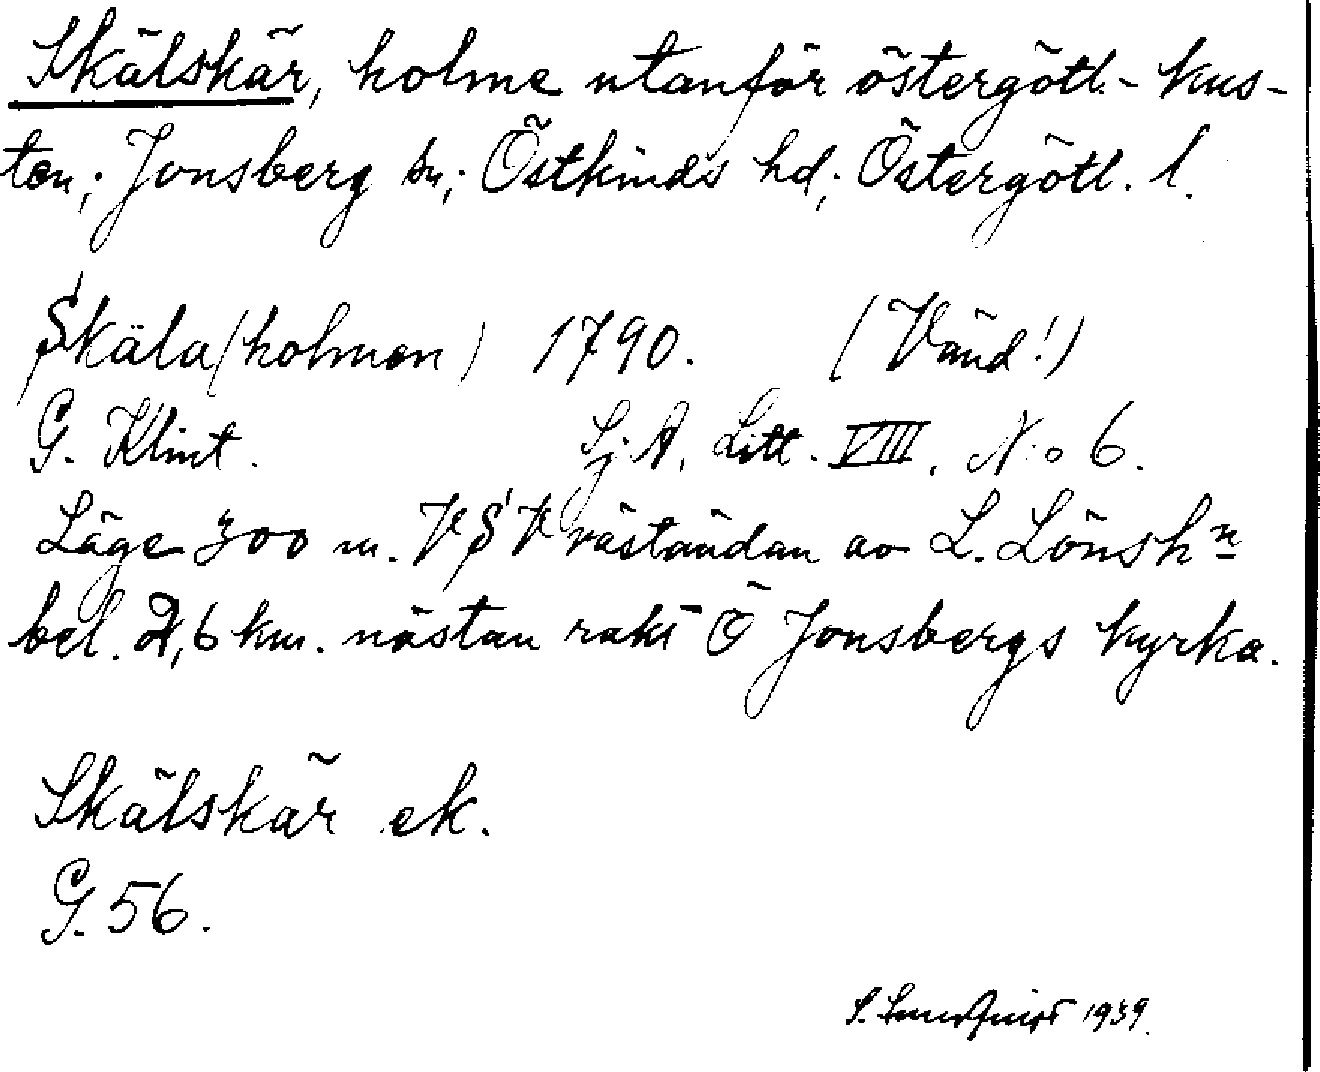 Skälskär, holme utanför östergötl.- kus-
ten; Jonsberg sn; Östkinds hd; Östergötl. l.
Skäla(holmen) 1790. (Vänd!)
G. Klint. Sj.A. Litt. VIII. N:o 6.
Läge 300 m. VSV väständan av L. Lönsh n
bel. 2,6 km. nästan rakt Ö Jonsbergs kyrka.
Skälskär ek.
G. 56.
S. 1939.